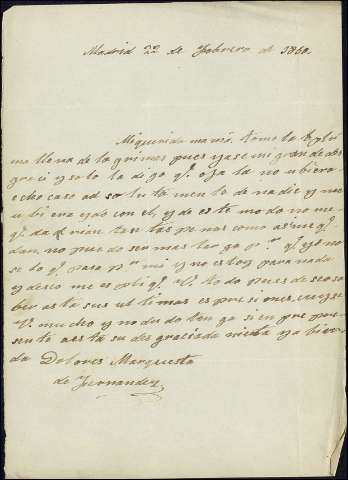 Madrid 22 de Febrero de 1860.
Mi querida mamá, tomo la plu
ma llena de lagrimas pues ya se mi gran de des
graci y solo la digo q.e ojala no ubiera
echo caso ad so luta mente de nadie y me
ubiera ydo con el, y de es te mo do no me
q.e da rian tan tas pe nas como as me q.e
dan, no pue do ser mas lar ga p.r q.e yo no
se lo q.e paso p.r mi y no es toy para nada
y deseo me es pli q.e V. to do pues de seo sa
ber as ta sus ul ti mas es pre si ones, cuyde
V. mucho y no du do ten ga si en pre pre
sente a es ta su des graciada nieta ya biu
da Dolores Marquesta
de Fernandez